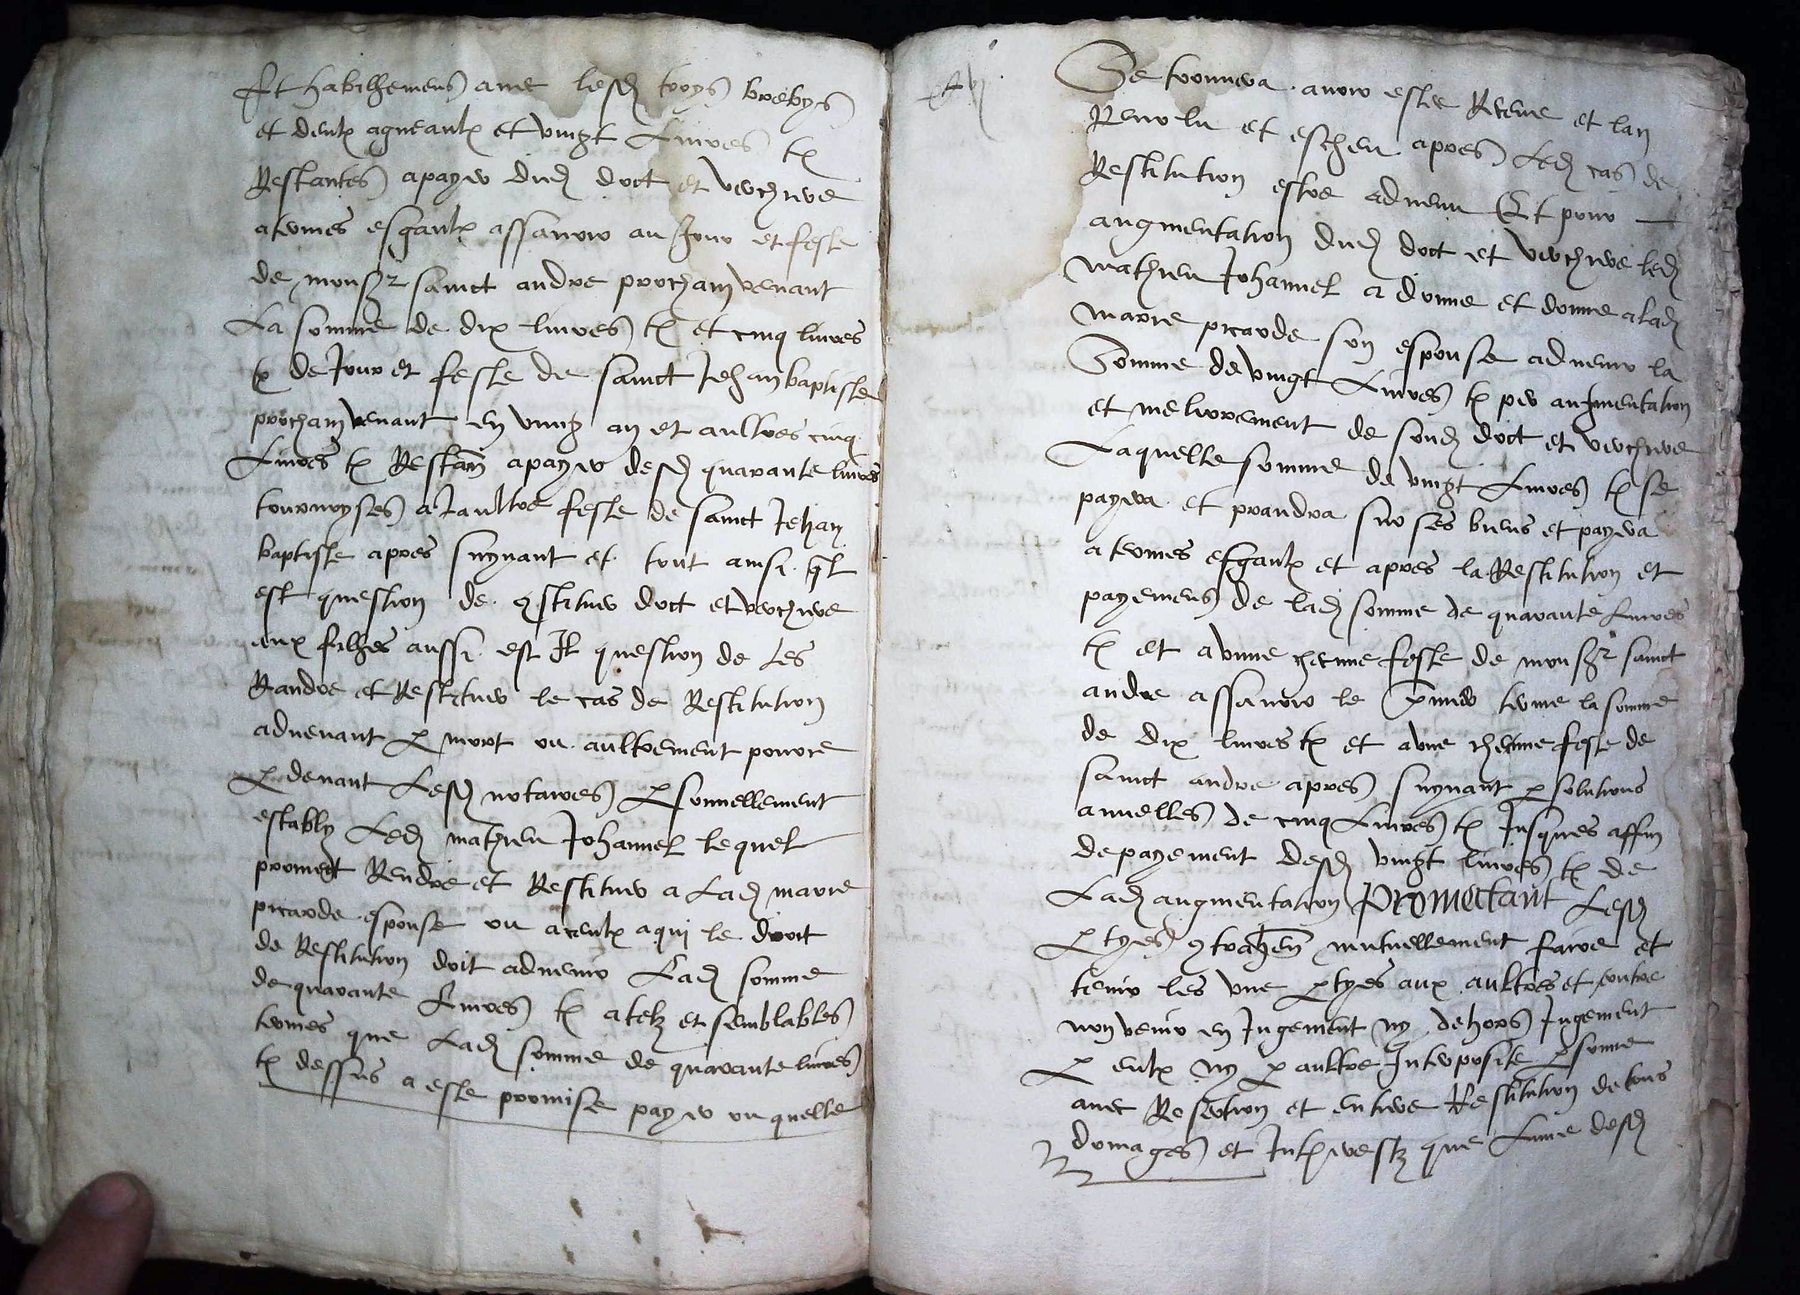 Et habilhemens ame lesd troys brebys
et deulx agneaulx et vingt Livres tz
Restantes a payer dud doct et verchiere
a termes esgaulx assavoir au Jour et feste
de monsr sainct andre prochain venant
La somme de dix livres tz et cinq livres
tz de Jour et feste de sainct Jehan baptiste
prochain venant en vung an et aultres cinq
Livres tz Restans a payer desd quarante livres
tournoyses a l'aultre feste de sainct Jehan
baptiste apres suyvant et tout ainsi ql
est question de 9stituer doct et verchiere
aux filhes aussi est Il question de Les
Randre et Restituer le cas de Restitution
advenant p mort ou aultrement pource
p devant Lesd notaires psonnellement
estably Led mathieu Johannel lequel
promect Rendre et Restituer a Lad marie
picarde espouse ou a ceulx a qui le droit
de Restitution doit advenir Lad somme
de quarante Livres tz a telz et semblables
termes que Lad somme de quarante livres
tz dessus a este promise payer ou quelle
Se trouvera avoir este Receue et lan
Revolu et escheu apres Led cas de
Restitution estre advenu Et pour
augmentation dud doct et verchiere led
mathieu Johannel a donne et donne a lad
marie picarde son espouse advenir la
Somme de vingt Livres tz per augmentation
et meliorement de sond doct et verchiere
Laquelle somme de vingt Livres tz se
payera et prandra sur ses biens et payera
a termes esgaulx et apres la Restitution et
payemens de lad somme de quarante Livres
tz et a vune checune feste de monsr sainct
andre assavoir le pmier terme la somme
de dix livres tz et a vne checune feste de
sainct andre apres suyvant p solutions
annuelles de cinq Livres tz Jusques affin
de payement desd vingt livres tz de
Lad augmentation Promectant Lesd
ptyes 9trahens mutuellement faire et
tenir les vne ptyes aux aultres et contre
non venir en Jugement ny dehors Jugement
p eulx ny p aultre Interposite psonne
avec Refection et entiere Restitution de tous
domages et Interestz que Lune desd